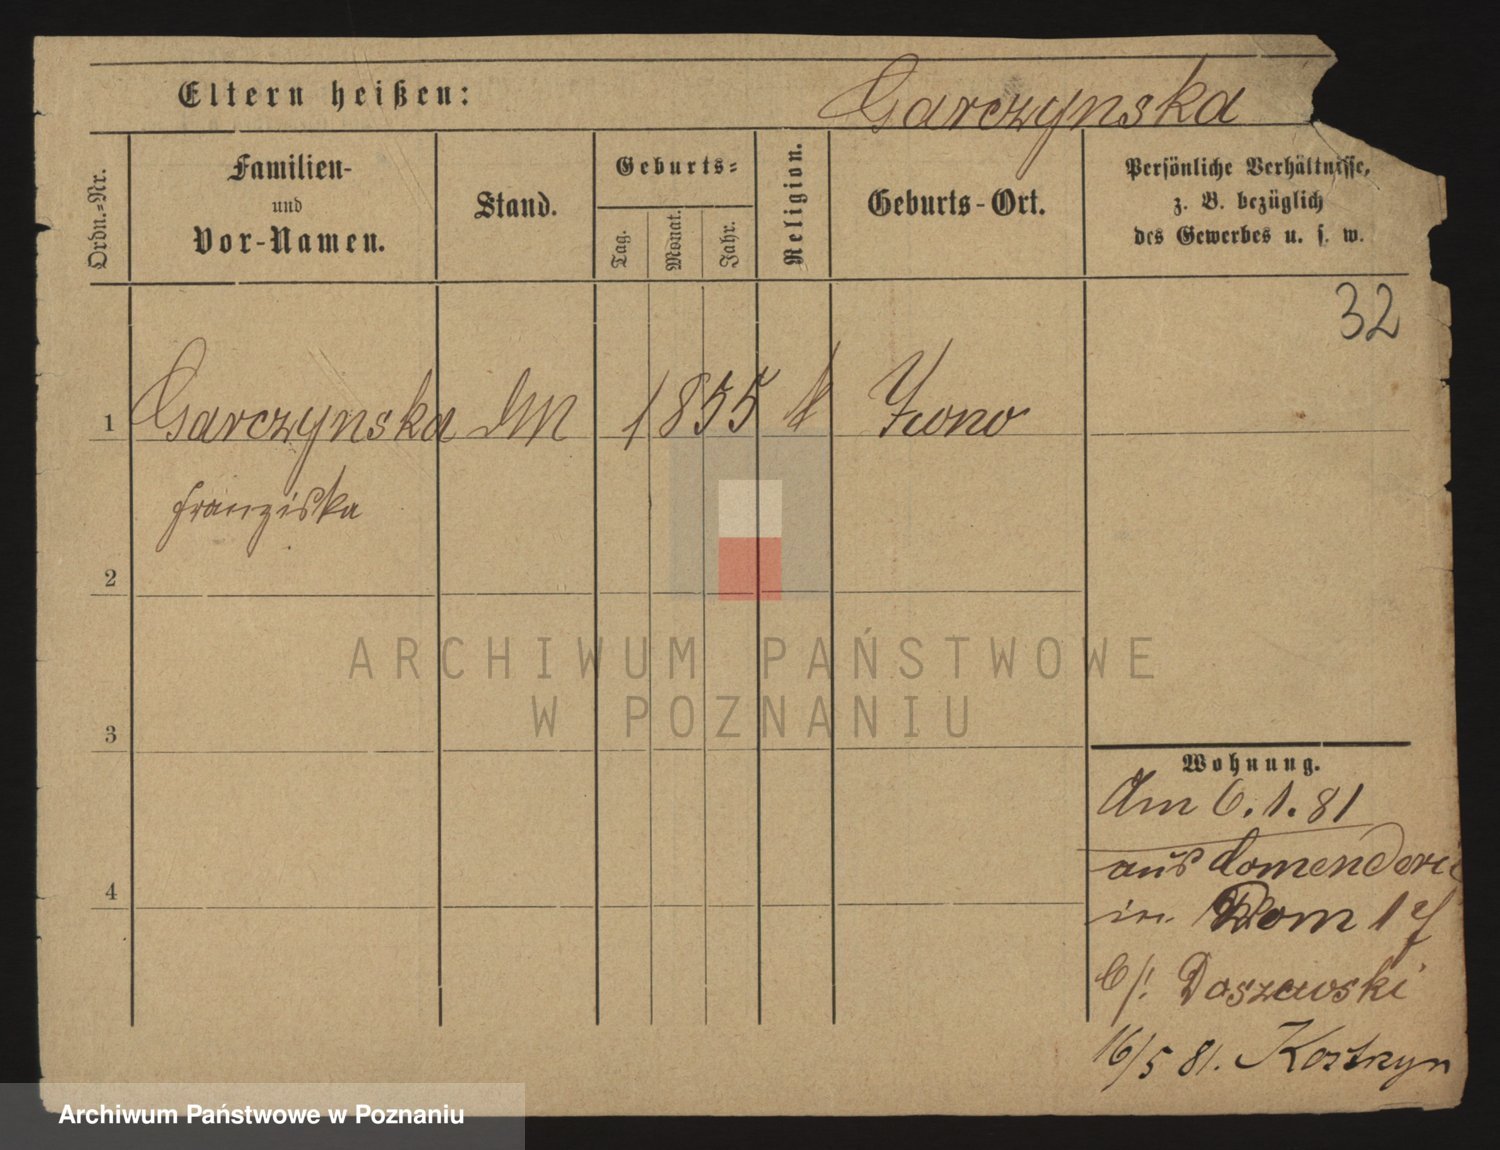 Eltern heißen:
Garczynska
Ordn.-Nr.
Familien-
und
Vor-Namen.
Stand.
Geburts-
Tag.
Monat.
Jahr.
Religion.
Geburts-Ort.
Persönliche Verhältnisse,
z. B. bezüglich
des Gewerbes u. s. w.
32
1
Garczynska
1855
k
Franziska
2
3
4
Wohnung.
Am 6.1.81
aus
in Dom 17
b/.
16/5 81. Kostrzyn
ARCHIWUM PAŃSTWOWE
W POZNANIU
Archiwum Państwowe w Poznaniu